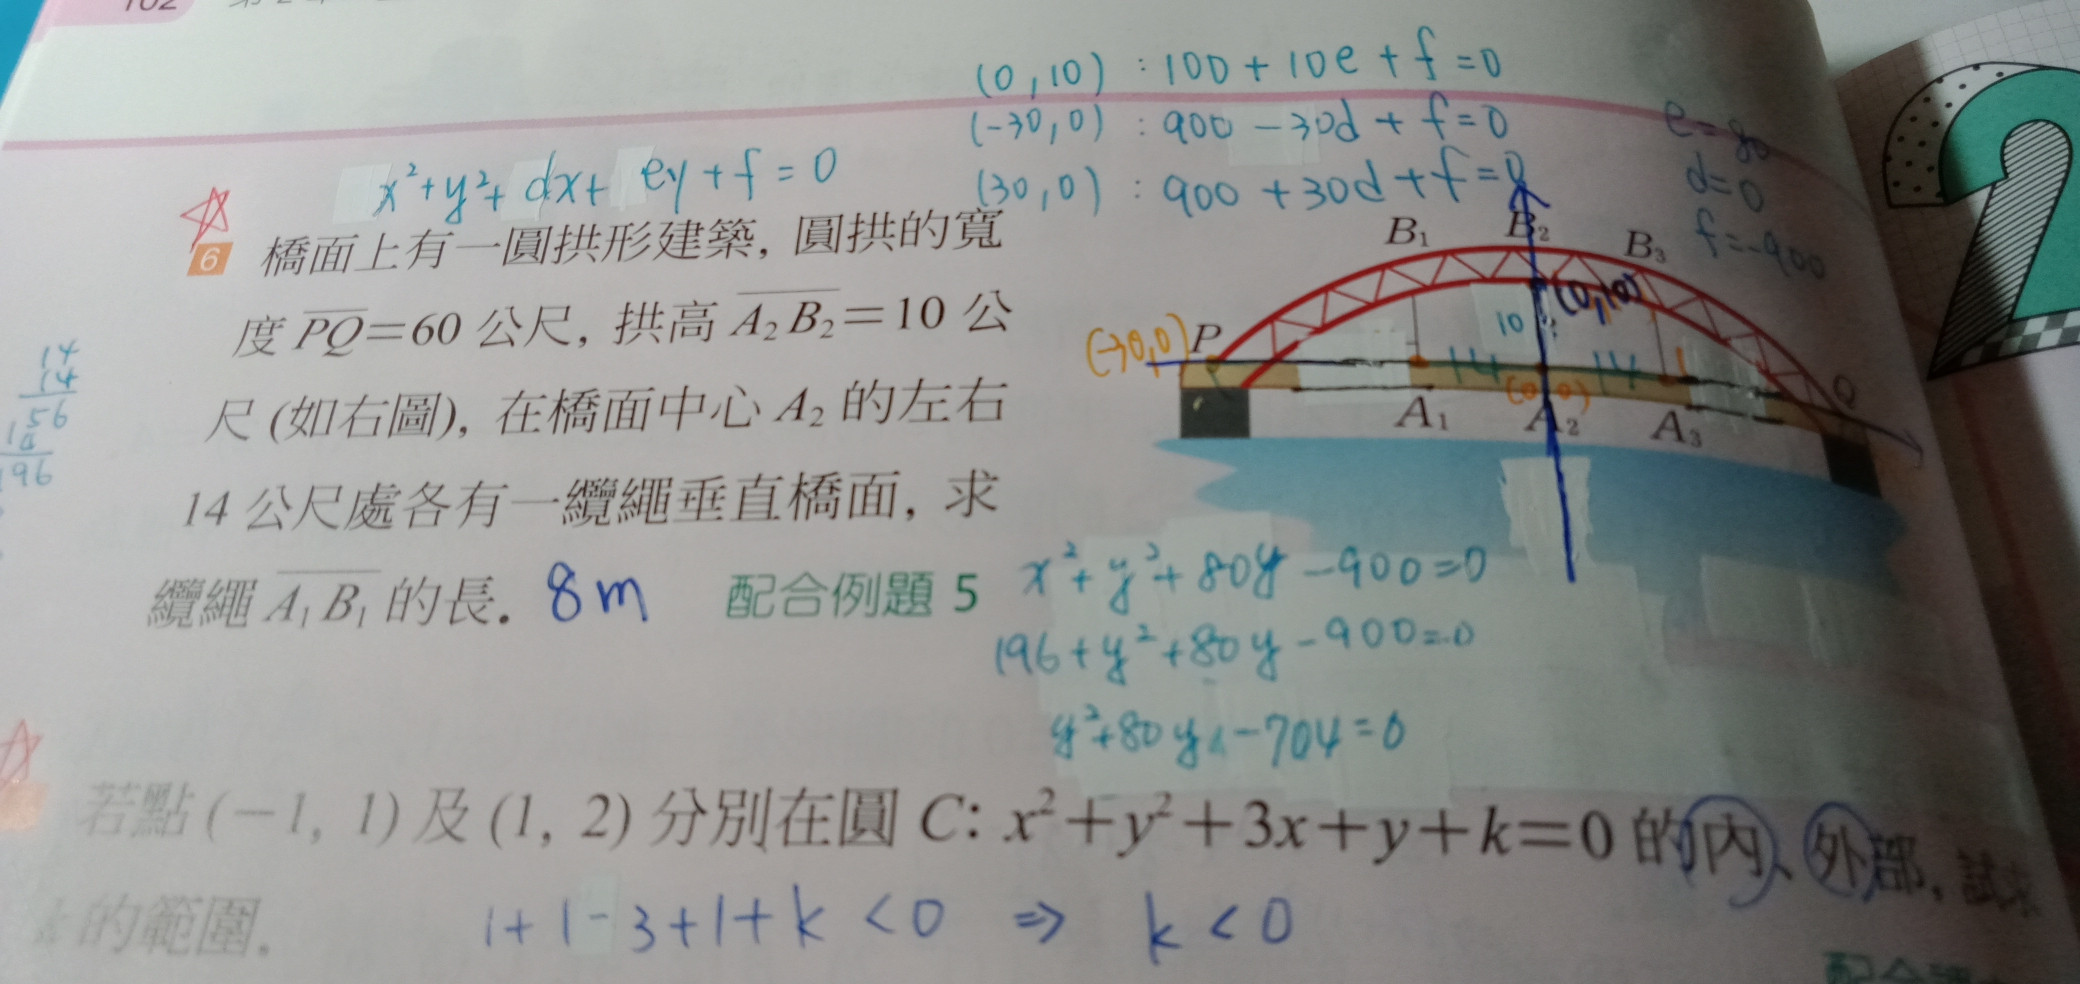 102
(0,10) : 100 + 10e + f = 0
(-30,0) : 900 - 30d + f = 0
(30,0) : 900 + 30d + f = 0
e = 80
d = 0
f = -900
x²+y²+ dx+ ey + f = 0
6 橋面上有一圓拱形建築, 圓拱的寬
度 PQ=60 公尺, 拱高 A₂B₂=10 公
尺 (如右圖), 在橋面中心 A₂ 的左右
14 公尺處各有一纜繩垂直橋面, 求
纜繩 A₁B₁ 的長. 8m 配合例題 5
14
14
56
196
B₁ B₂ B₃
(0,10)
10
(-30,0) P
14 14
(0,0)
Q
A₁ A₂ A₃
x²+y²+80y-900=0
196+y²+80y-900=0
y²+80y-704=0
若點 (-1, 1) 及 (1, 2) 分別在圓 C: x²+y²+3x+y+k=0 的內、外部, 試求
k 的範圍.
1+1-3+1+k <0 ⇒ k < 0
2